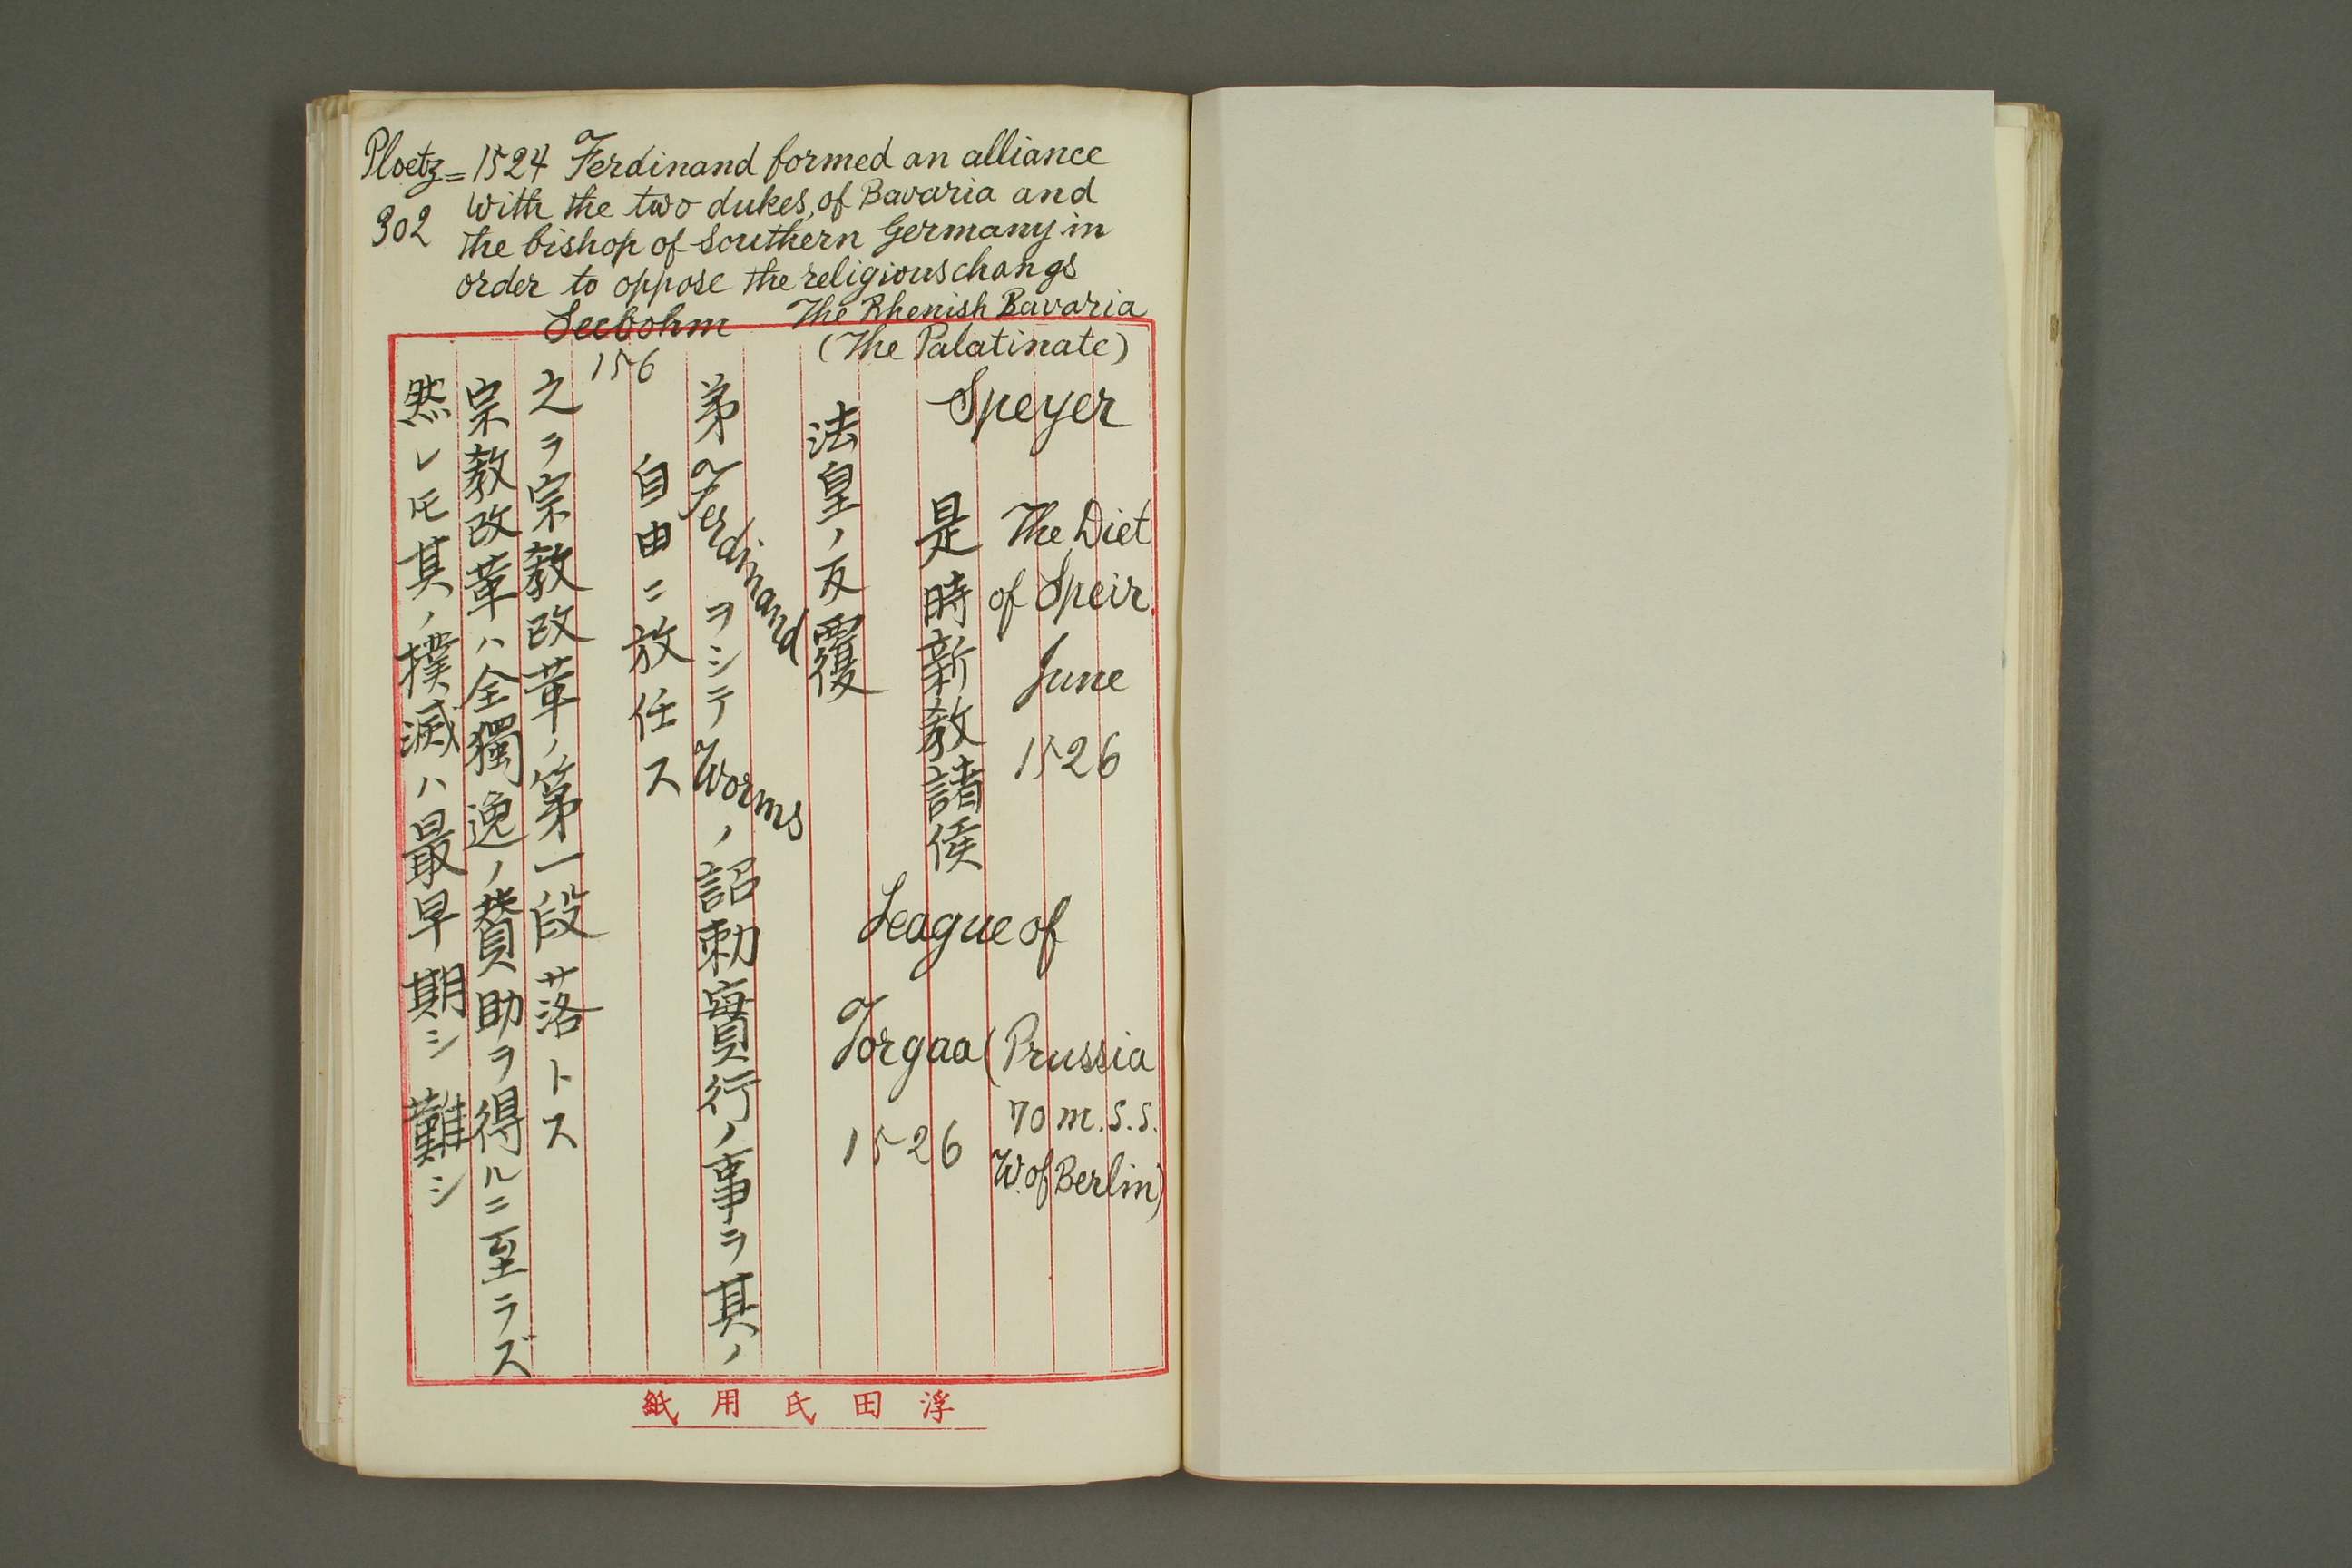 Ploetz = 1524 Ferdinand formed an alliance
302 with the two dukes, of Bavaria and
the bishop of Southern Germany in
order to oppose the religious changs
Seebohm
156
The Rhenish Bavaria
(The Palatinate)
Speyer
The Diet
of Speir
June
1526
是時新教諸侯
League of
Torgaa (Prussia
70 m. S. S.
W. of Berlin)
1526
法皇ノ反覆
弟Ferdinandヲシテ Worms ノ詔勅實行ノ事ヲ其ノ
自由ニ放任ス
之ヲ宗教改革ノ第一段落トス
宗教改革ハ全獨逸ノ賛助ヲ得ルニ至ラズ
然レ𪜈其ノ撲滅ハ最早期シ難シ
紙用氏田浮